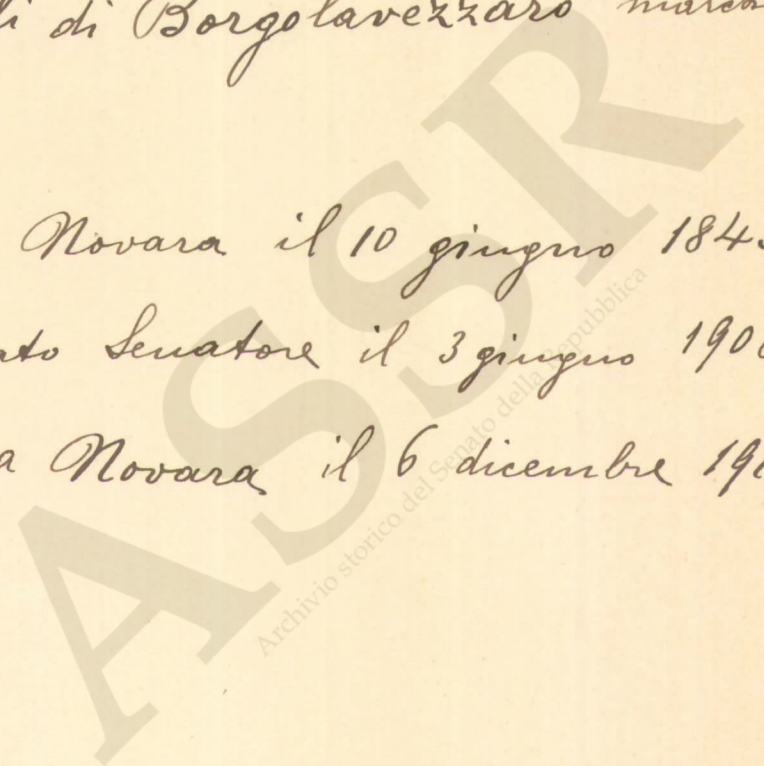 di Borgolavezzaro
Novara il 10 giugno 184
Senatore il 3 giugno 190
a Novara il 6 dicembre 19
ASSR
Archivio storico del Senato della Repubblica